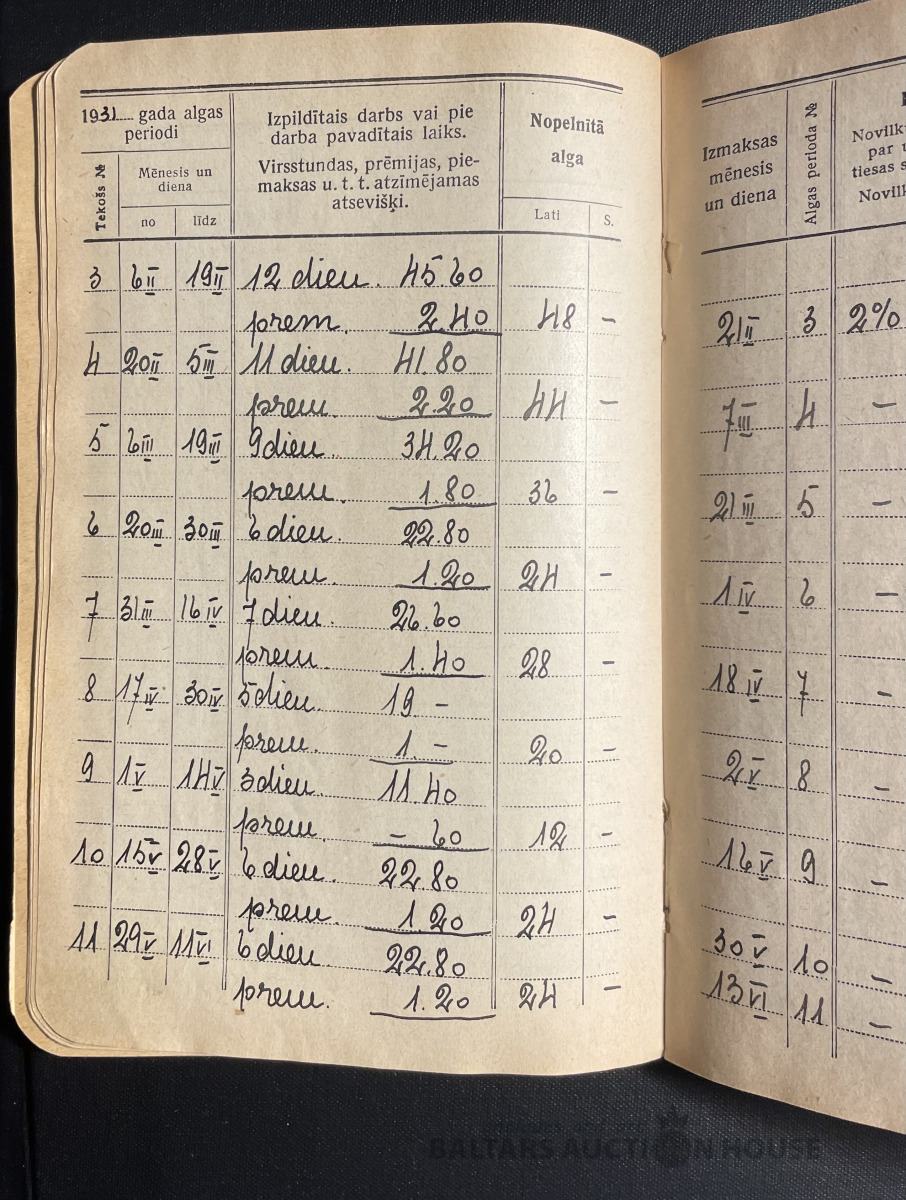 1931 gada algas periodi
Tekošs №
Mēnesis un diena
no līdz
Izpildītais darbs vai pie
darba pavadītais laiks.
Virsstundas, prēmijas, pie-
maksas u. t. t. atzīmējamas
atsevišķi.
Nopelnītā
alga
Lati S.
3 6II 19II 12 dien. 45.60
prem. 2.40 48 –
4 20II 5III 11 dien. 41.80
prem. 2.20 44 –
5 6III 19III 9 dien. 34.20
prem. 1.80 36 –
6 20III 30III 6 dien. 22.80
prem. 1.20 24 –
7 31III 16IV 7 dien. 26.60
prem. 1.40 28 –
8 17IV 30IV 5 dien. 19 –
prem. 1. – 20 –
9 1V 14V 3 dien. 11.40
prem. – 60 12 –
10 15V 28V 6 dien. 22.80
prem. 1.20 24 –
11 29V 11VI 6 dien. 22.80
prem. 1.20 24 –
Izmaksas
mēnesis
un diena
Algas perioda №
Novilk
par u
tiesas s
Novilk
21II 3 2%
7III 4 –
21III 5 –
1IV 6 –
18IV 7 –
2V 8 –
16V 9 –
30V 10 –
13VI 11 –
BALTARS AUCTION HOUSE